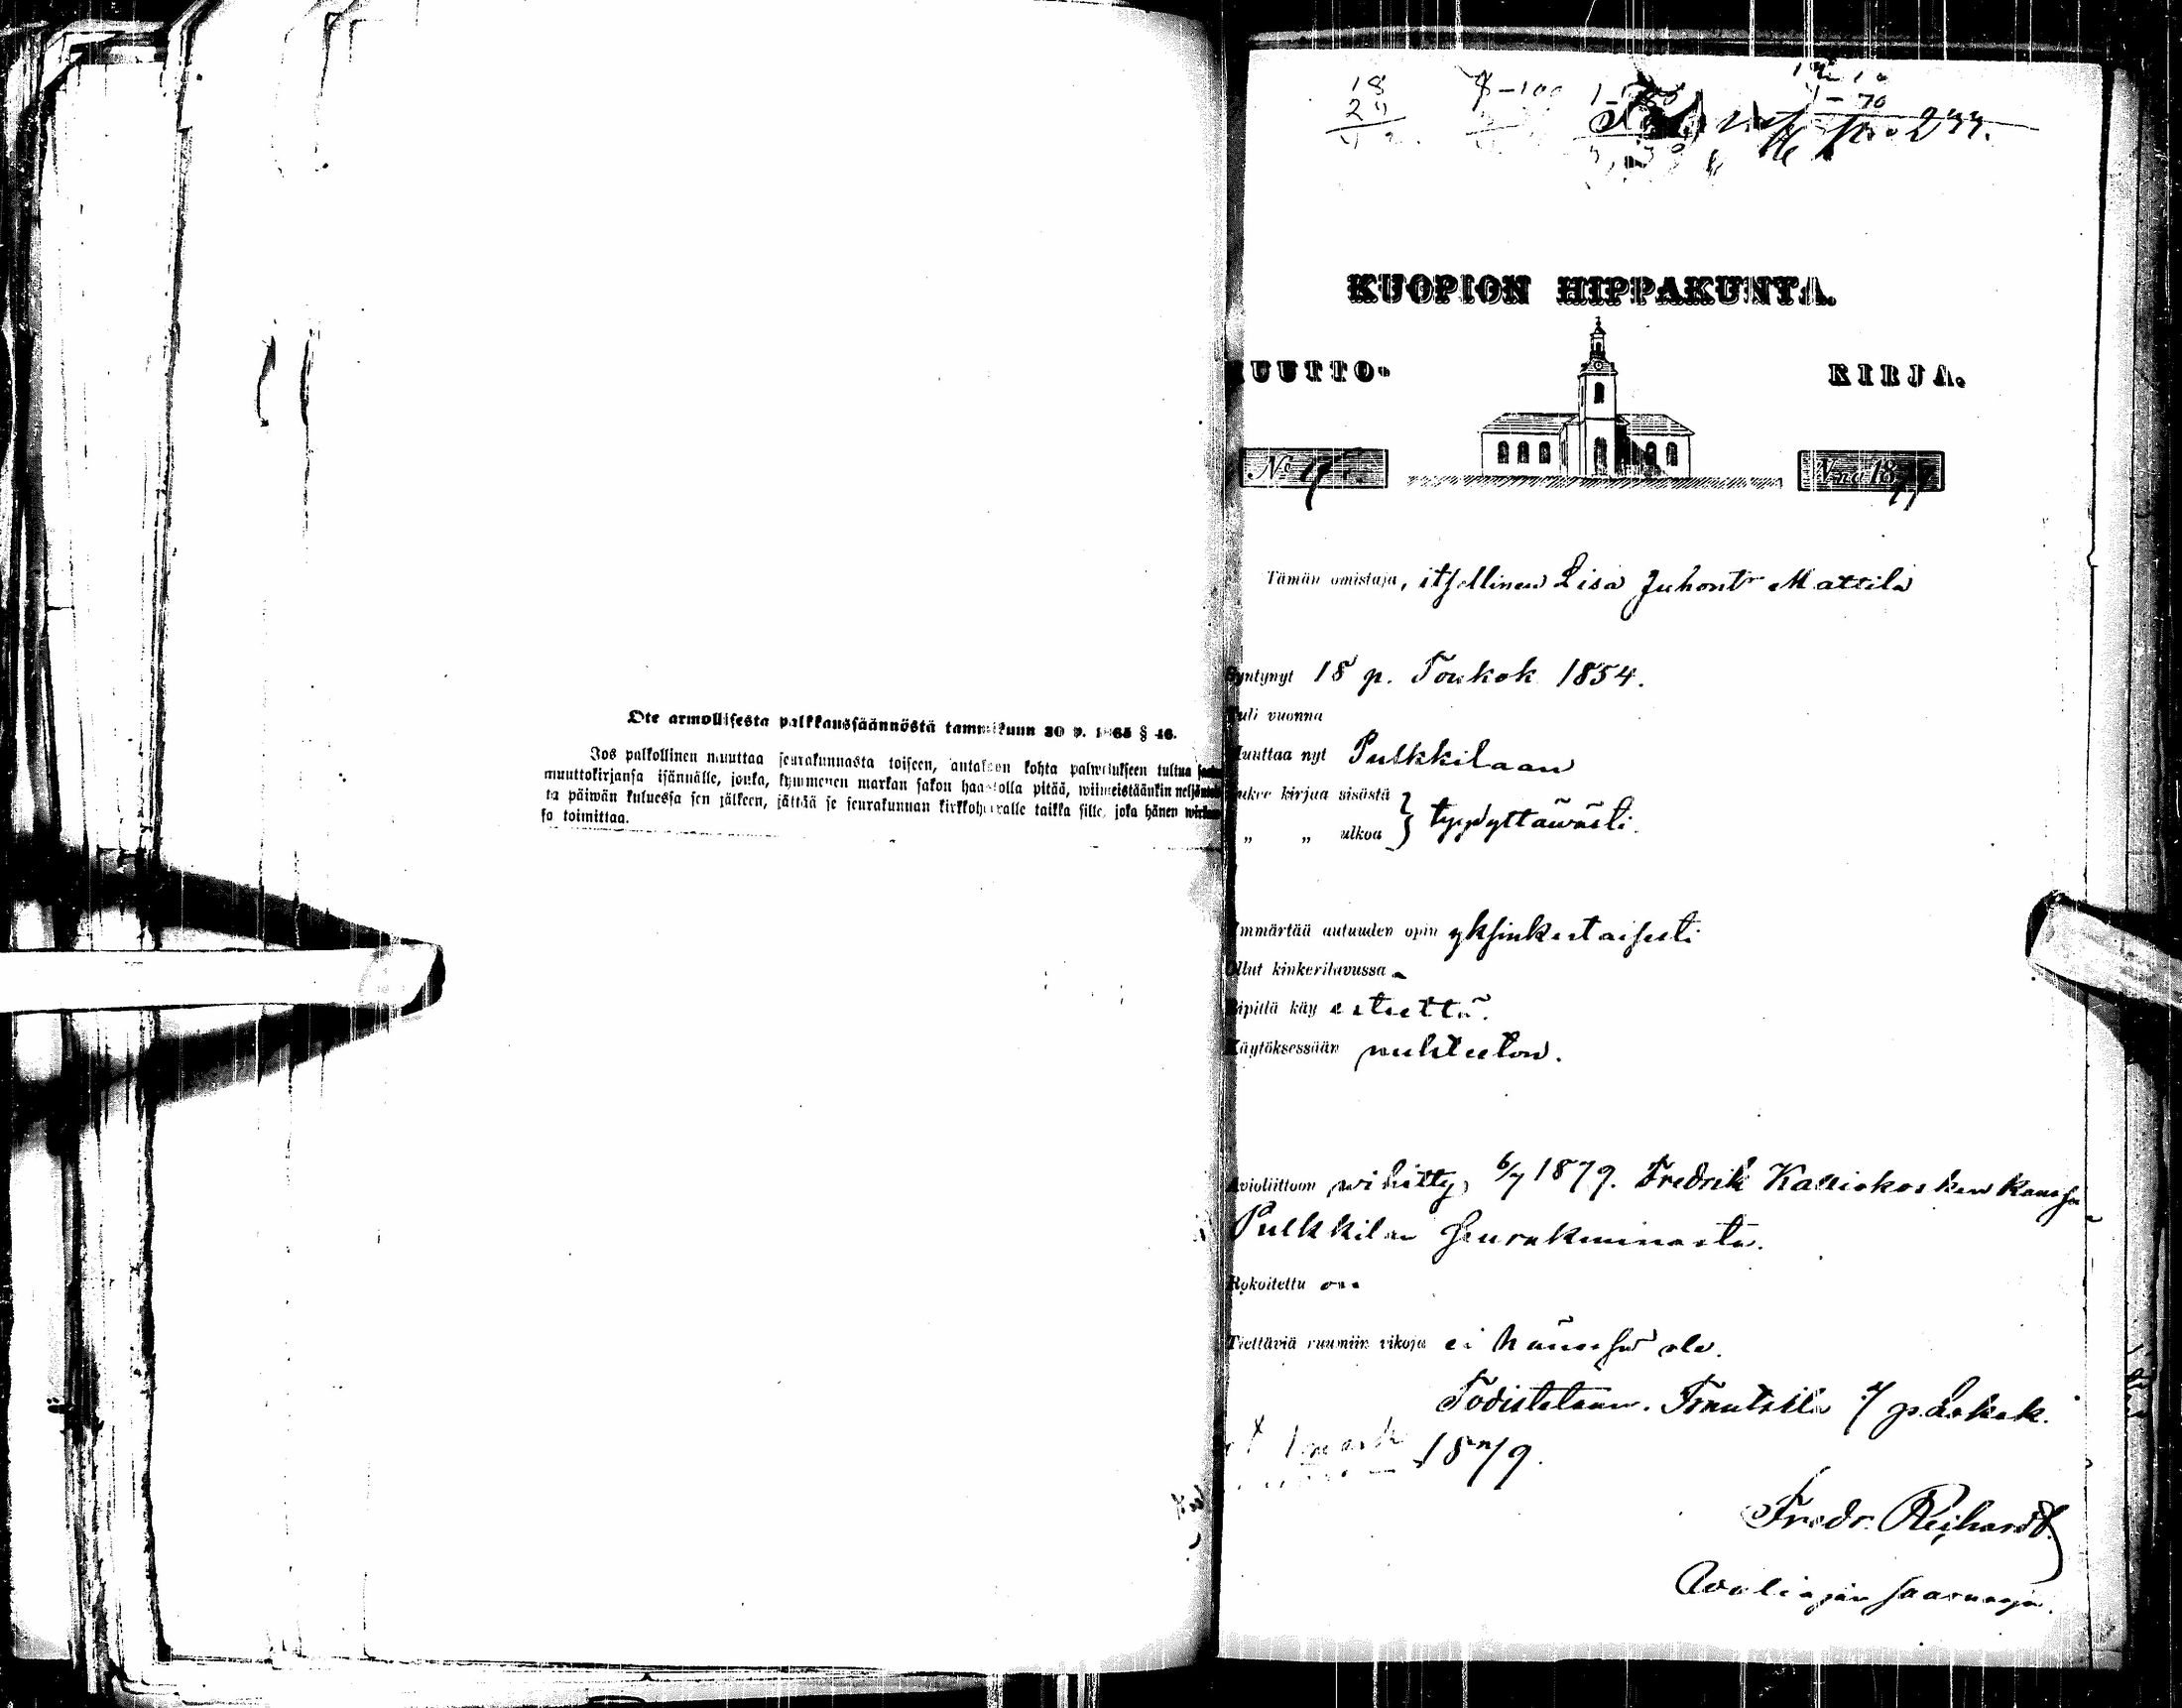 Ote armollisesta palkkaussäännöstä tammikuun 30 p. 1865 § 46.
Jos palkollinen muuttaa seurakunnasta toiseen, antakoon kohta palwelukseen tultua
muuttokirjansa isännälle, jonka, kymmenen markan sakon haastolla pitää, wiimeistäänkin
ta päiwän kuluessa sen jälkeen, jättää se seurakunnan kirkkoherralle taikka sille, joka hänen
sa toimittaa.
18
KUOPION HIPPAKUNTA.
MUUTTO- KIRJA.
No V:na 1879
Tämän omistaja, itsellinen Lisa Juhontr Mattila
Syntynyt 18 p. Toukok 1854.
Tuli vuonna
Muuttaa nyt Pulkkilaan
Lukee kirjaa sisästä
„ „ ulkoa } tyydyttäwästi.
Ymmärtää autuuden opin yksinkertaisesti
Ollut kinkerilavussa -
Ripillä käy esteettä.
Käytöksessään nuhteeton.
Avioliittoon wihitty 6/7 1879. Fredrik Kalliokosken kanssa
Pulkkilan seurakunnasta.
Rokoitettu on
Tiettäviä ruumiin vikoja ei hänessä ole.
Todistetaan. Frantsila 7 p. Lokak.
1879.
Fredr. Reihardt.